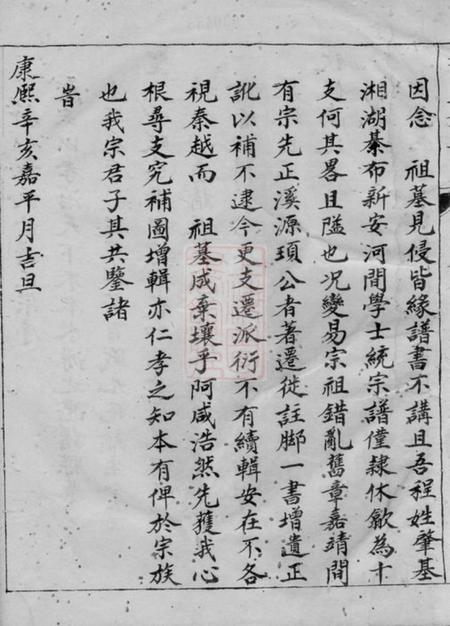 因念　祖墓見侵皆緣譜書不講且吾程姓肇基
湘湖棊布新安河間學士統宗譜僅隸休歙為十
支何其畧且隘也况變易宗祖錯亂舊章嘉靖間
有宗先正溪源頊公者著遷徙註脚一書增遺正
訛以補不逮今更支遷派衍不有續輯安在不各
視秦越而　祖墓咸棄壤乎阿咸浩然先獲我心
根尋支究補圖增輯亦仁孝之知本有俾於宗族
也我宗君子其共鑒諸
旹
康熙辛亥嘉平月吉旦